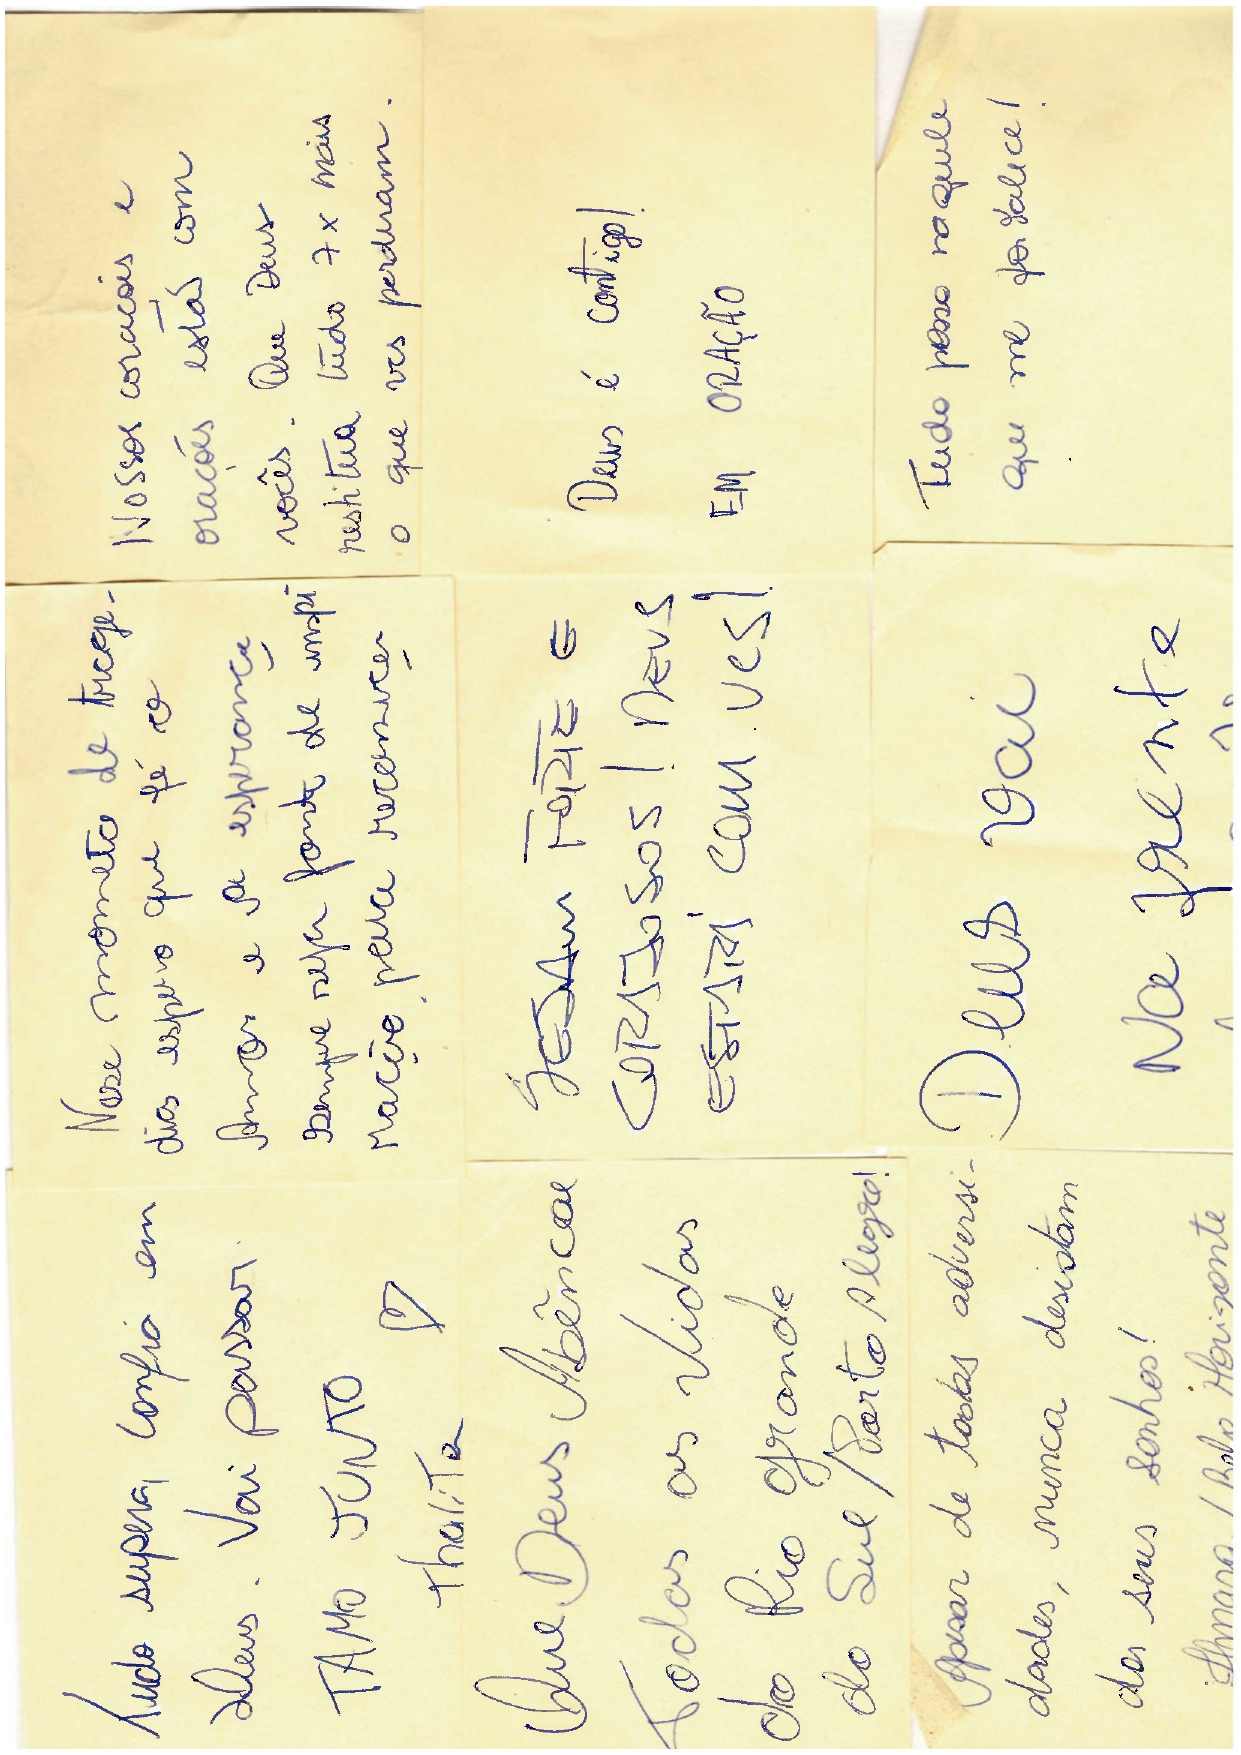 Tudo supera, confia em
Deus. Vai passar.
TAMO JUNTO
Thalita
Nesse momento de trage-
dias espero que fé o
Amor e a esperança
sempre seja fonte de inspi
ração para reconver
Nossos coracois e
oraçoés estás com
vocês. Que Deus
restitua tudo 7x mais
o que vcs perderam.
Que Deus Abençoe
Todas as Vidas
do Rio grande
do Sul / Porto Alegre!
SEJAM FORTE E
CORAJOSOS! DEUS
ESTARÁ COM VCS!
Deus é contigo!
EM ORAÇÃO
Apesar de todas adversi-
dades, nunca desistam
dos seus sonhos!
/ Belo Horizonte
Deus vai
Na frente
Tudo posso naquele
que me fortalece!